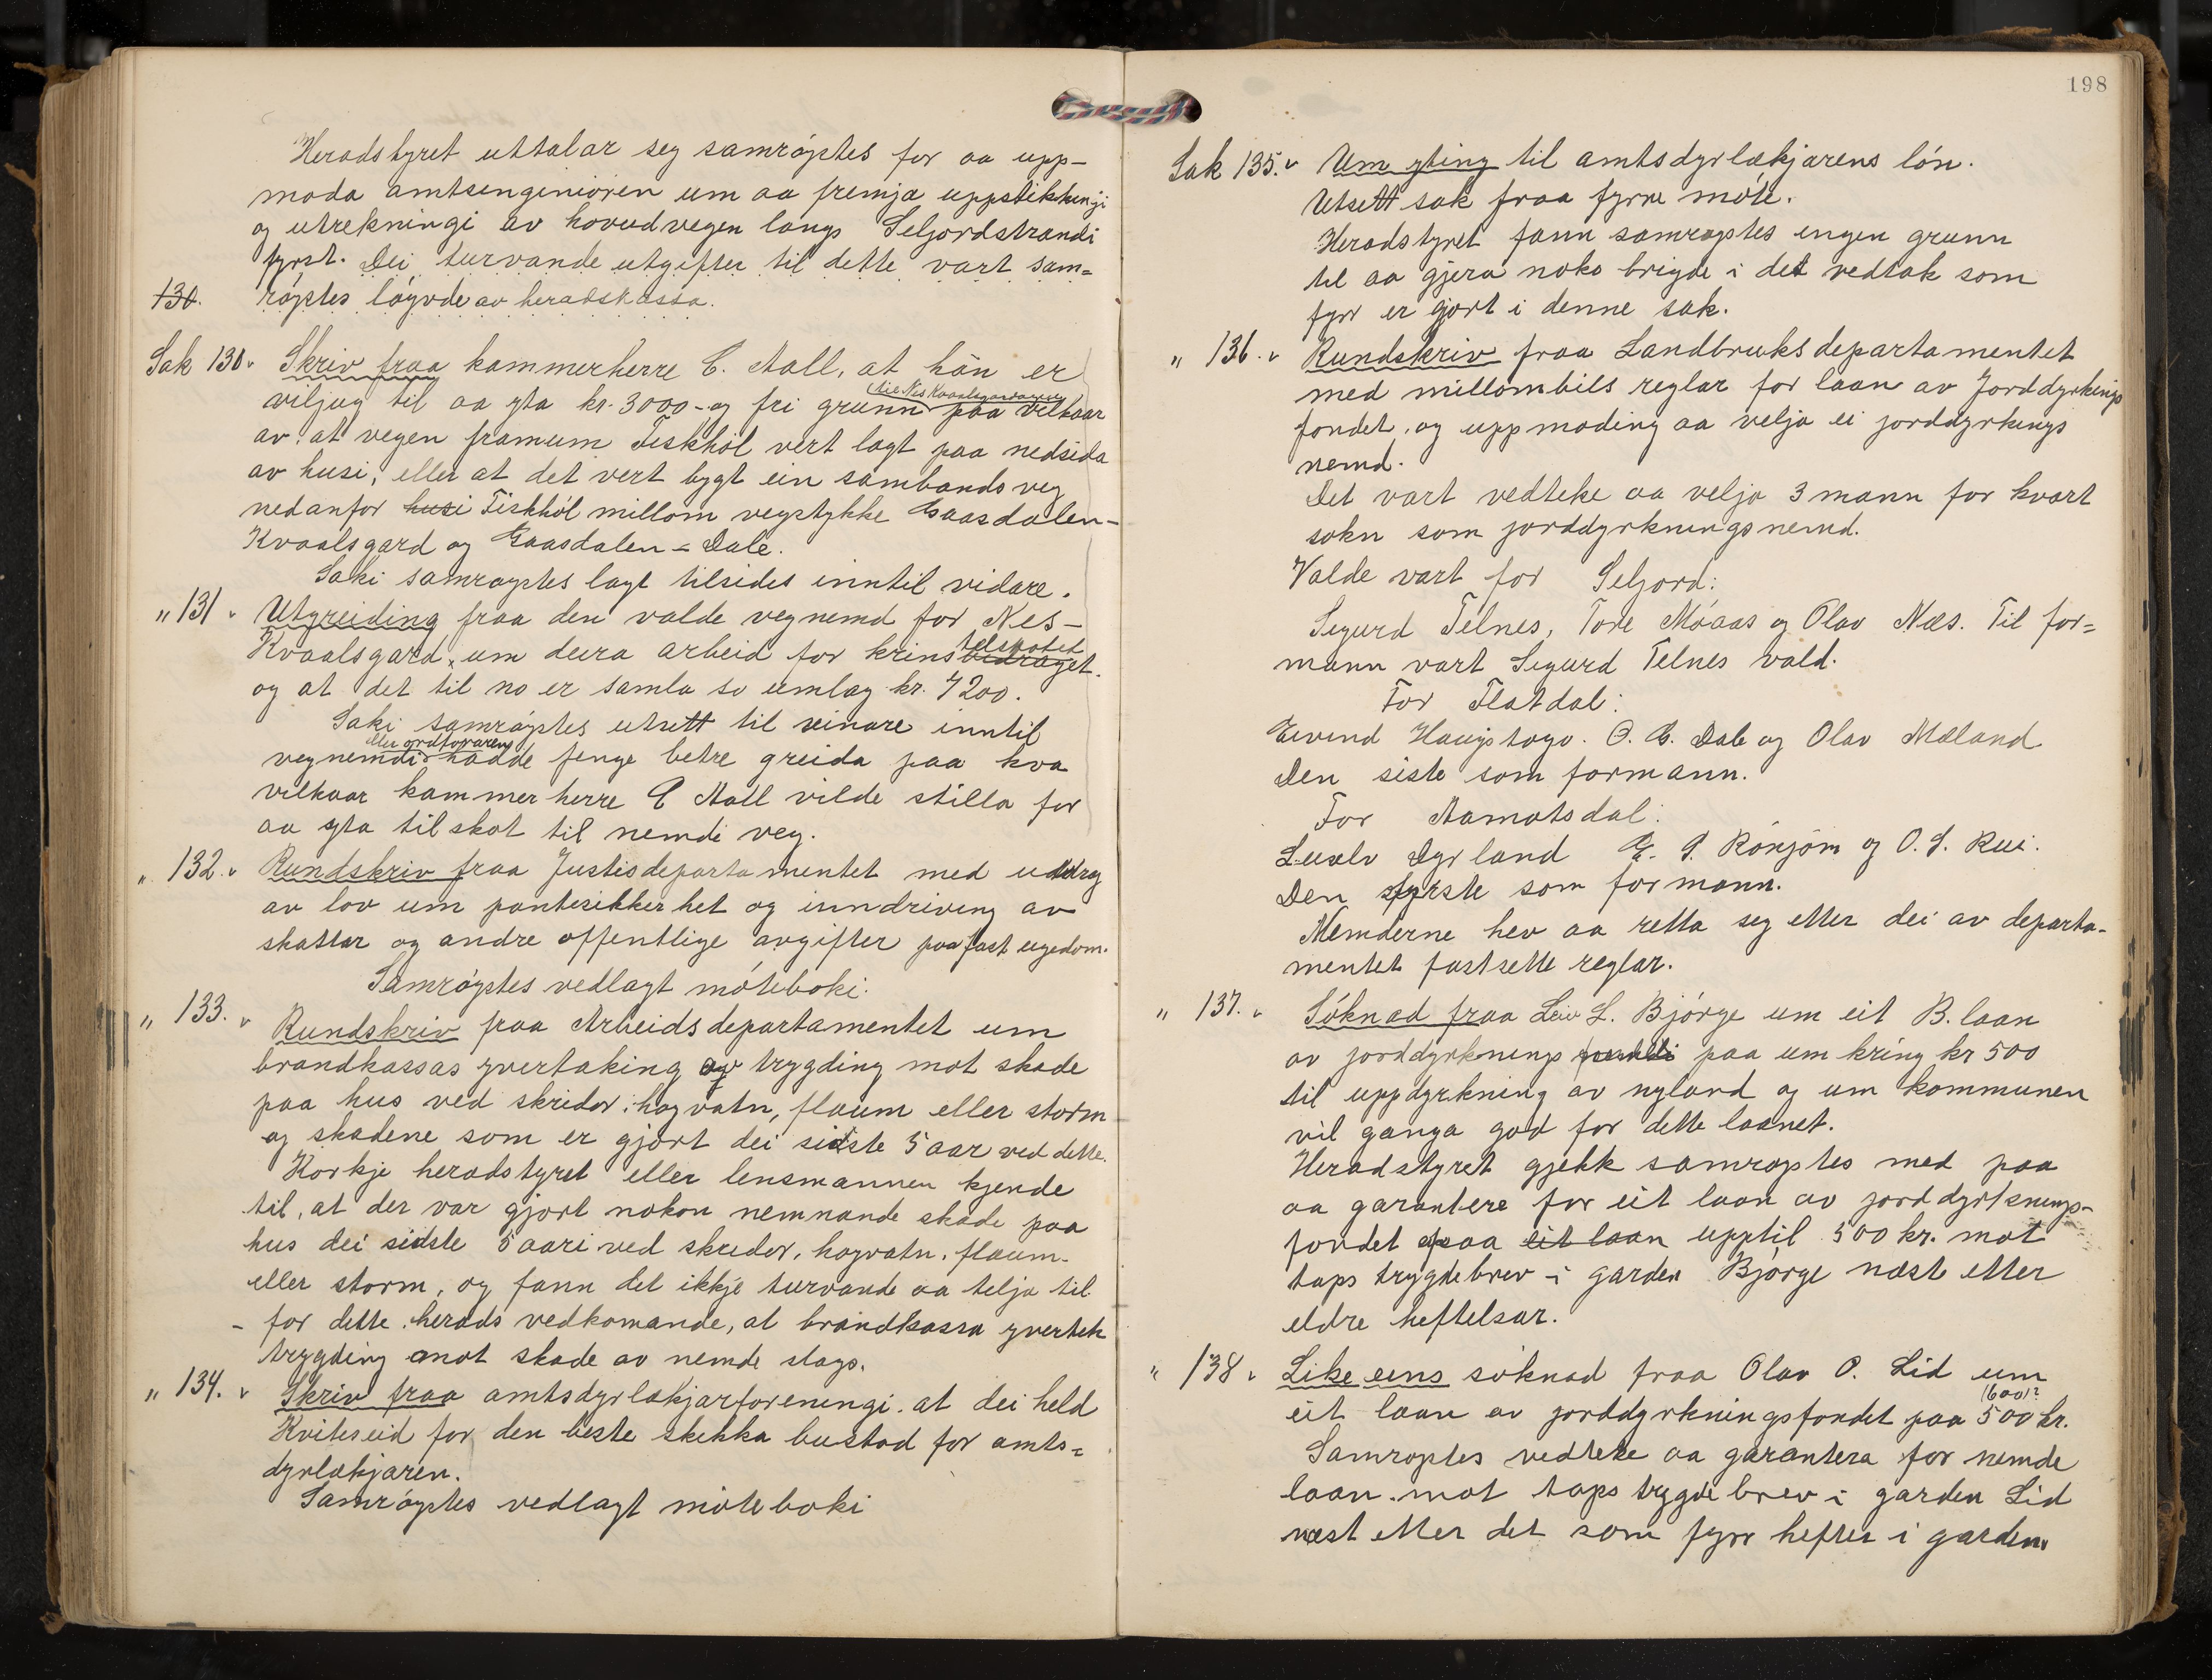 Heradstyret uttalar seg samrøystes for aa upp-
moda amtsingeniøren um aa fremja uppstikkingi
og utrekningi av hovudvegen langs Seljordstrandi
fyrst. Dei turvande utgifter til dette vart sam=
130. røystes løyvde av heradskassa.
Sak 130. Skriv fraa kammerherre C. Aall, at han er
viljug til aa yta kr. 3000 - og fri grunn til Nes Kvaalsgardvegen paa vilkaar
av: at vegen framum Fiskhól vert lagt paa nedsida
av husi, eller at det vert bygt ein sambands veg
nedanfor husi Fiskhól millom vegstykke Gaasdalen-
Kvaalsgard og Gaasdalen = Dale.
Saki samrøystes lagt tilsides inntil vidare.
" 131 Utgreiding fraa den valde vegnemd for Nes-
Kvaalsgard, um deira arbeid for krins bidraget. telskotet
og at det til no er samla so umlag kr. 7200.
Saki samrøystes utsett til seinare inntil
vegnemdi eller ordføraren hadde fenge betre greida paa kva
vilkaar kammerherre C Aall vilde stilla for
aa yta tilskot til nemdi veg.
" 132. Rundskriv fraa Justisdepartamentet med utdrag
av lov um pantesikkerhet og inndriving av
skattar og andre offentlige avgifter paa fast eigedom.
Samrøystes vedlagt møteboki.
" 133. Rundskriv fraa Arbeidsdepartamentet um
brandkassas yvertaking av trygding mot skade
paa hus ved skridor, hogvatn, flaum eller storm
og skadene som er gjort dei sidste 5 aar ved dette.
Korkje heradstyret eller lensmannen kjende
til, at der var gjort nokon nemnande skade paa
hus dei sidste 5 aari ved skridor, hogvatn, flaum-
eller storm, og fann det ikkje turvande aa telja til
- for dette herads vedkomande, at brandkassa yvertek
trygding mot skade av nemde slags.
" 134. Skriv fraa amtsdyrlækjarforeningi. at dei held
Kviteseid for den beste skikka bustad for amts=
dyrlækjaren.
Samrøystes vedlagt møteboki
198
Sak 135. Um yting til amtsdyrlækjarens løn.
Utsett sak fraa fyrre møte.
Heradstyret fann samrøystes engen grunn
til aa gjera noko brigde i det vedtak som
fyrr er gjort i denne sak.
" 136. Rundskriv fraa Landbruksdepartamentet
med millombils reglar for laan av Jorddyrkings
fondet, og uppmoding aa velja ei jorddyrkings
nemd.
Det vart vedteke aa velja 3 mann for kvart
sokn som jorddyrkningsnemd.
Valde vart for Seljord:
Sigurd Telnes, Tore Móaas og Olav Næs. Til for=
mann vart Sigurd Telnes vald.
For Flatdal:
Eivind Haugstogo. O. G. Dale og Olav Mæland
Den siste som formann.
For Aamotsdal:
Dyrland G. G. Rónjóm og O. S. Rui.
Den fyrste som formann.
Nemderne hev aa retta seg etter dei av departa-
mentet fastsette reglar.
" 137. Søknad fraa Leiv L. Bjørge um eit B. laan
av jorddyrknings paa um kring kr 500
til uppdyrkning av nyland og um kommunen
vil ganga god for dette laanet.
Heradstyret gjekk samrøystes med paa
aa garantere for eit laan av jorddyrknings-
fondet paa eit laan upptil 500 kr. mot
taps trygdebrev i garden Bjørge næst etter
eldre heftelsar.
" 138. Like eins søknad fraa Olav O. Lid um
eit laan av jorddyrkningsfondet paa 500 kr. (600)?
Samrøystes vedteke aa garantera for nemde
laan. mot taps trygdebrev i garden Lid
næst etter det som fyrr hefter i garden.